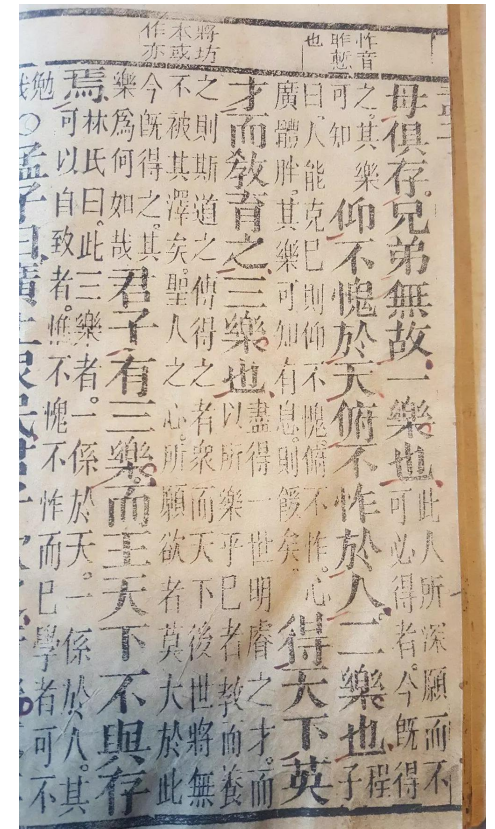 怍音
昨慙
也
將坊
本或
作亦
母俱存。兄弟無故。一樂也。
此人所深願而不
可必得者。今既得
之。其樂
可知
仰不愧於天。俯不怍於人。二樂也。
程
子
曰。人能克己則仰不愧。俯不怍。心
廣體胖。其樂可知。有息。則餒矣。
得天下英
才而敎育之。三樂也。
盡得一世明睿之才。而
以所樂乎己者敎而養
之則斯道之傳得之者衆而天下後世將無
不被其澤矣。聖人之心。所願欲者莫大於此
今既得之。其
樂爲何如哉
君子有三樂。而王天下不與存
焉。
林氏曰。此三樂者。一係於天。一係於人。其
可以自致者。惟不愧不怍而已學者可不
勉
哉
○孟子曰。廣土衆民。君子欲之